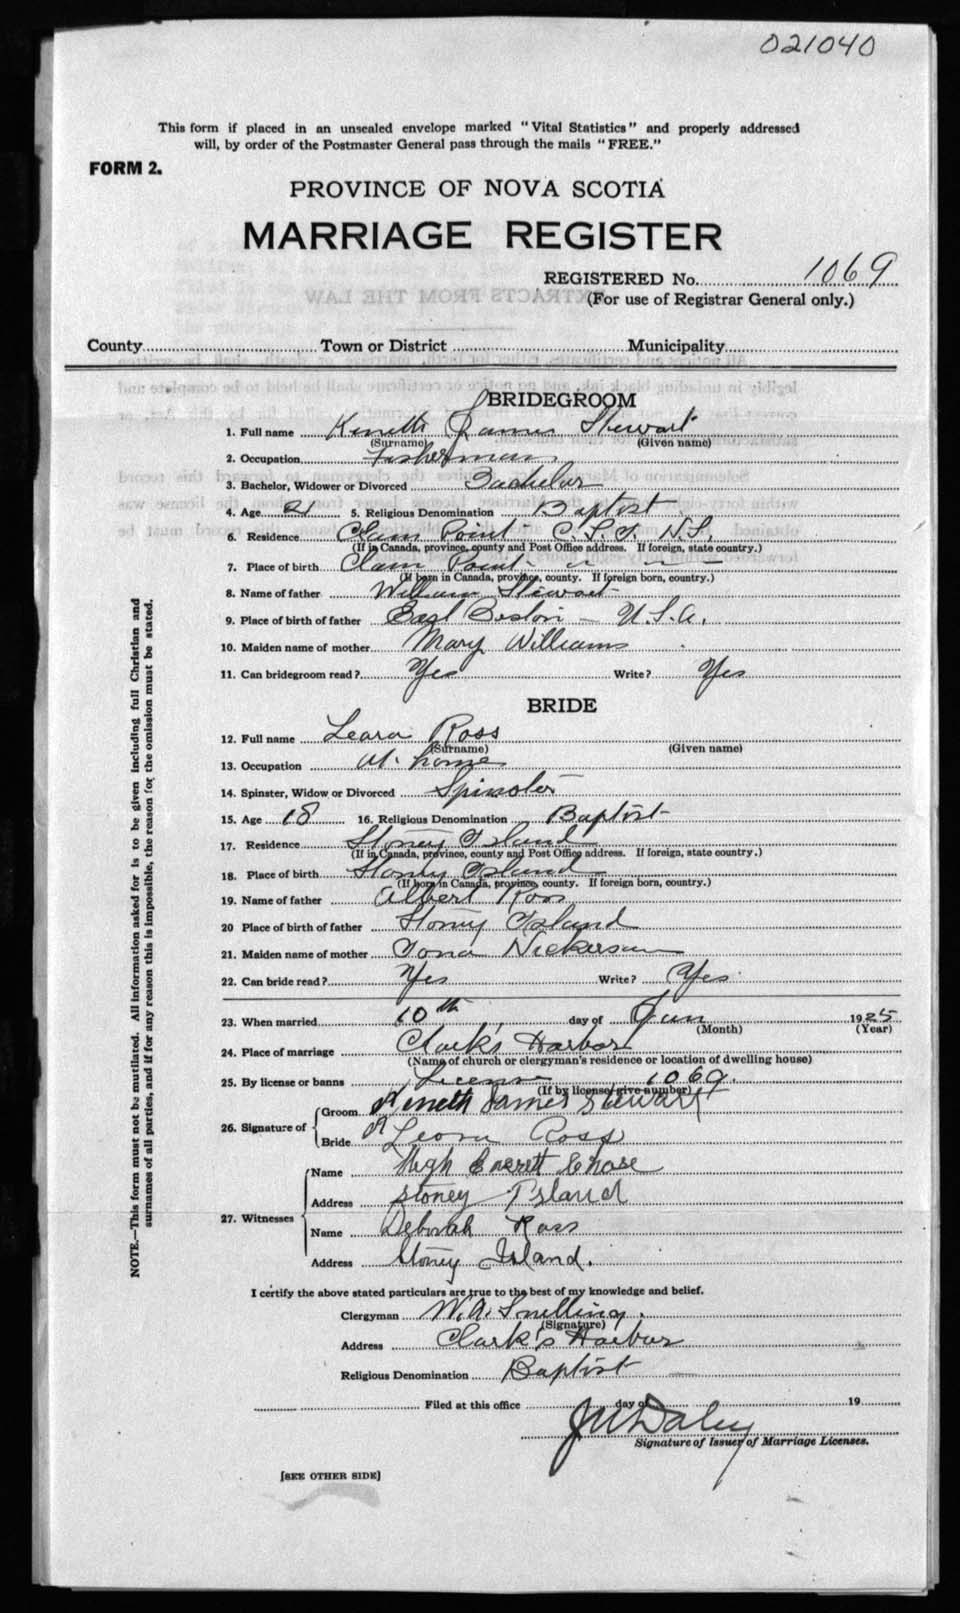 021040
This form if placed in an unsealed envelope marked "Vital Statistics" and properly addressed
will, by order of the Postmaster General pass through the mails "FREE."
FORM 2.
PROVINCE OF NOVA SCOTIA
MARRIAGE REGISTER
REGISTERED No. 1069
(For use of Registrar General only.)
County Town or District Municipality
BRIDEGROOM
1. Full name Kenneth James Stewart
(Surname) (Given name)
2. Occupation Fisherman
3. Bachelor, Widower or Divorced Bachelor
4. Age 21 5. Religious Denomination Baptist
6. Residence Clam Point C.S.I. N.S.
(If in Canada, province, county and Post Office address. If foreign, state country.)
7. Place of birth Clam Point " " "
(If born in Canada, province, county. If foreign born, country.)
8. Name of father William Stewart
9. Place of birth of father East Boston - U.S.A.
10. Maiden name of mother Mary Williams
11. Can bridegroom read? Yes Write? Yes
BRIDE
12. Full name Leora Ross
(Surname) (Given name)
13. Occupation At home
14. Spinster, Widow or Divorced Spinster
15. Age 18 16. Religious Denomination Baptist
17. Residence Stoney Island
(If in Canada, province, county and Post Office address. If foreign, state country.)
18. Place of birth Stoney Island
(If born in Canada, province, county. If foreign born, country.)
19. Name of father Albert Ross
20 Place of birth of father Stoney Island
21. Maiden name of mother Nickerson
22. Can bride read? Yes Write? Yes
23. When married 10th day of Jun 1925
(Month) (Year)
24. Place of marriage Clark's Harbor
(Name of church or clergyman's residence or location of dwelling house)
25. By license or banns License 1069.
(If by license, give number)
26. Signature of Groom Kenneth James Stewart
Bride Leora Ross
27. Witnesses Name Hugh Everett Chase
Address Stoney Island
Name Deborah Ross
Address Stoney Island.
I certify the above stated particulars are true to the best of my knowledge and belief.
Clergyman W. A. Snelling.
(Signature)
Address Clark's Harbor
Religious Denomination Baptist
Filed at this office day of 19
J W Daley
Signature of Issuer of Marriage Licenses.
[SEE OTHER SIDE]
NOTE.—This form must not be mutilated. All information asked for is to be given including full Christian and
surnames of all parties, and if for any reason this is impossible, the reason for the omission must be stated.